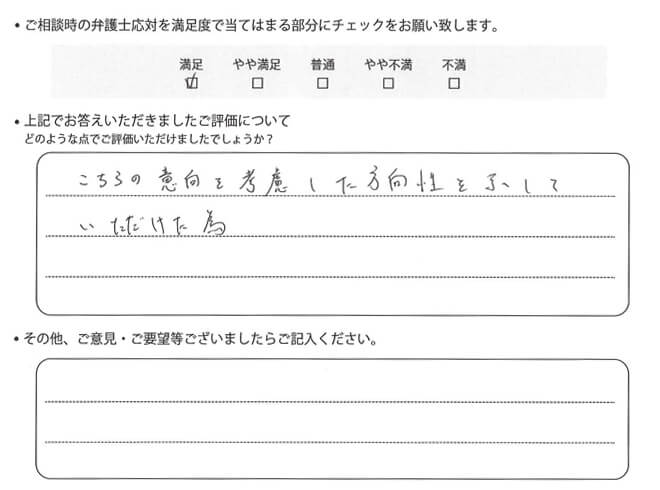 ・ご相談時の弁護士応対を満足度で当てはまる部分にチェックをお願い致します。
満足 やや満足 普通 やや不満 不満
☑ □ □ □ □
・上記でお答えいただきましたご評価について
どのような点でご評価いただけましたでしょうか?
こちらの意向を考慮した方向性を示して
いただけた為
・その他、ご意見・ご要望等ございましたらご記入ください。